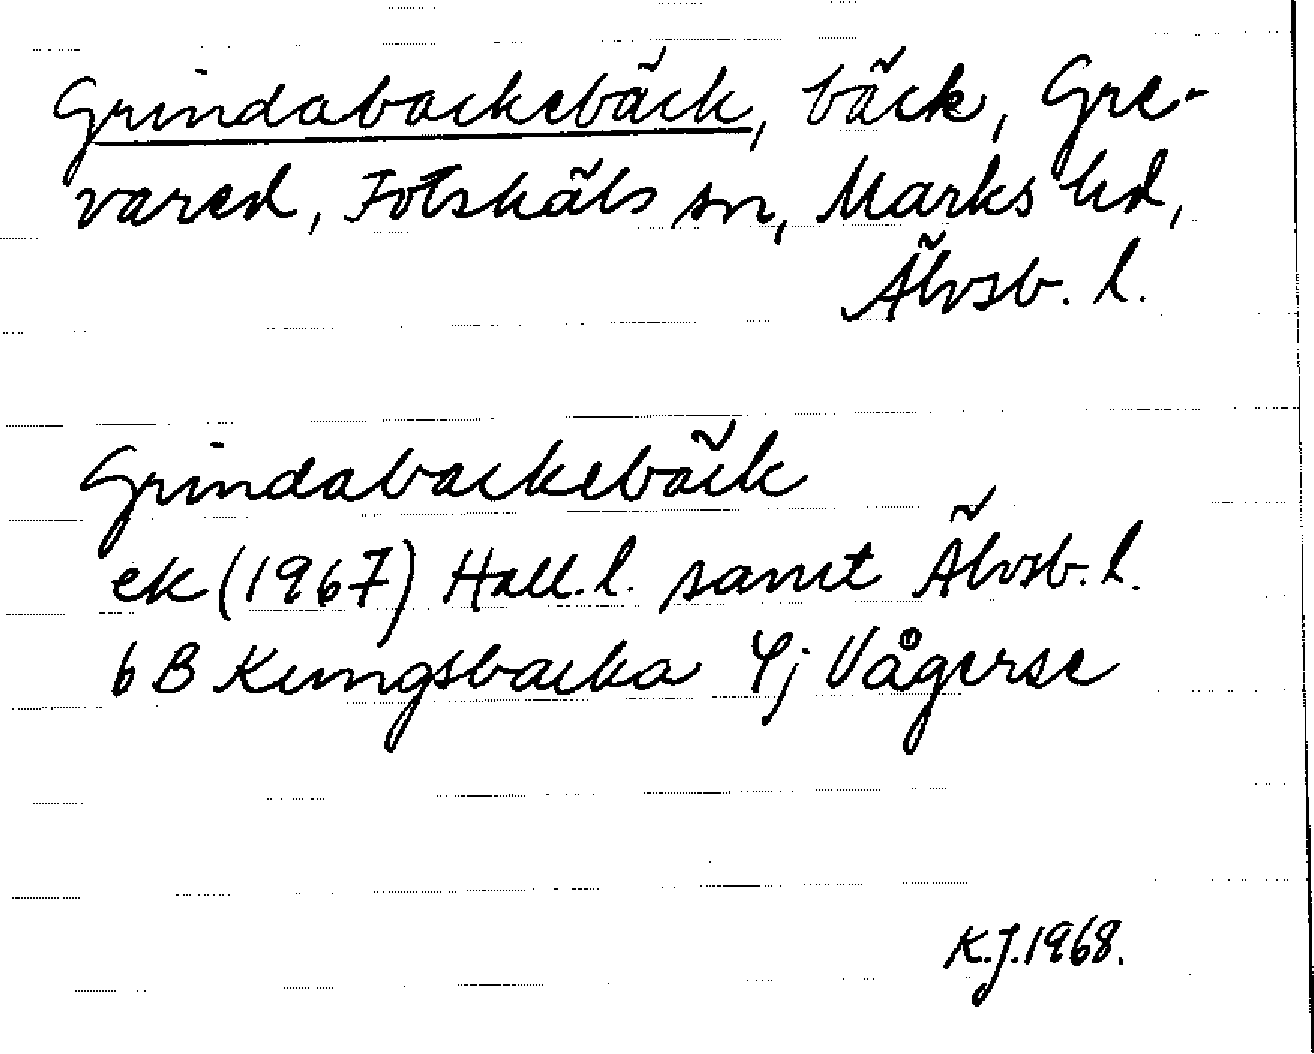 Grindabackebäck, bäck, Gre-
vared, Fotskäls sn, Marks hd,
Älvsb. l.
Grindabackebäck
ek (1967) Hall. l. samt Älvsb. l.
6 B Kungsbacka 4j Vågerse
K.J. 1968.